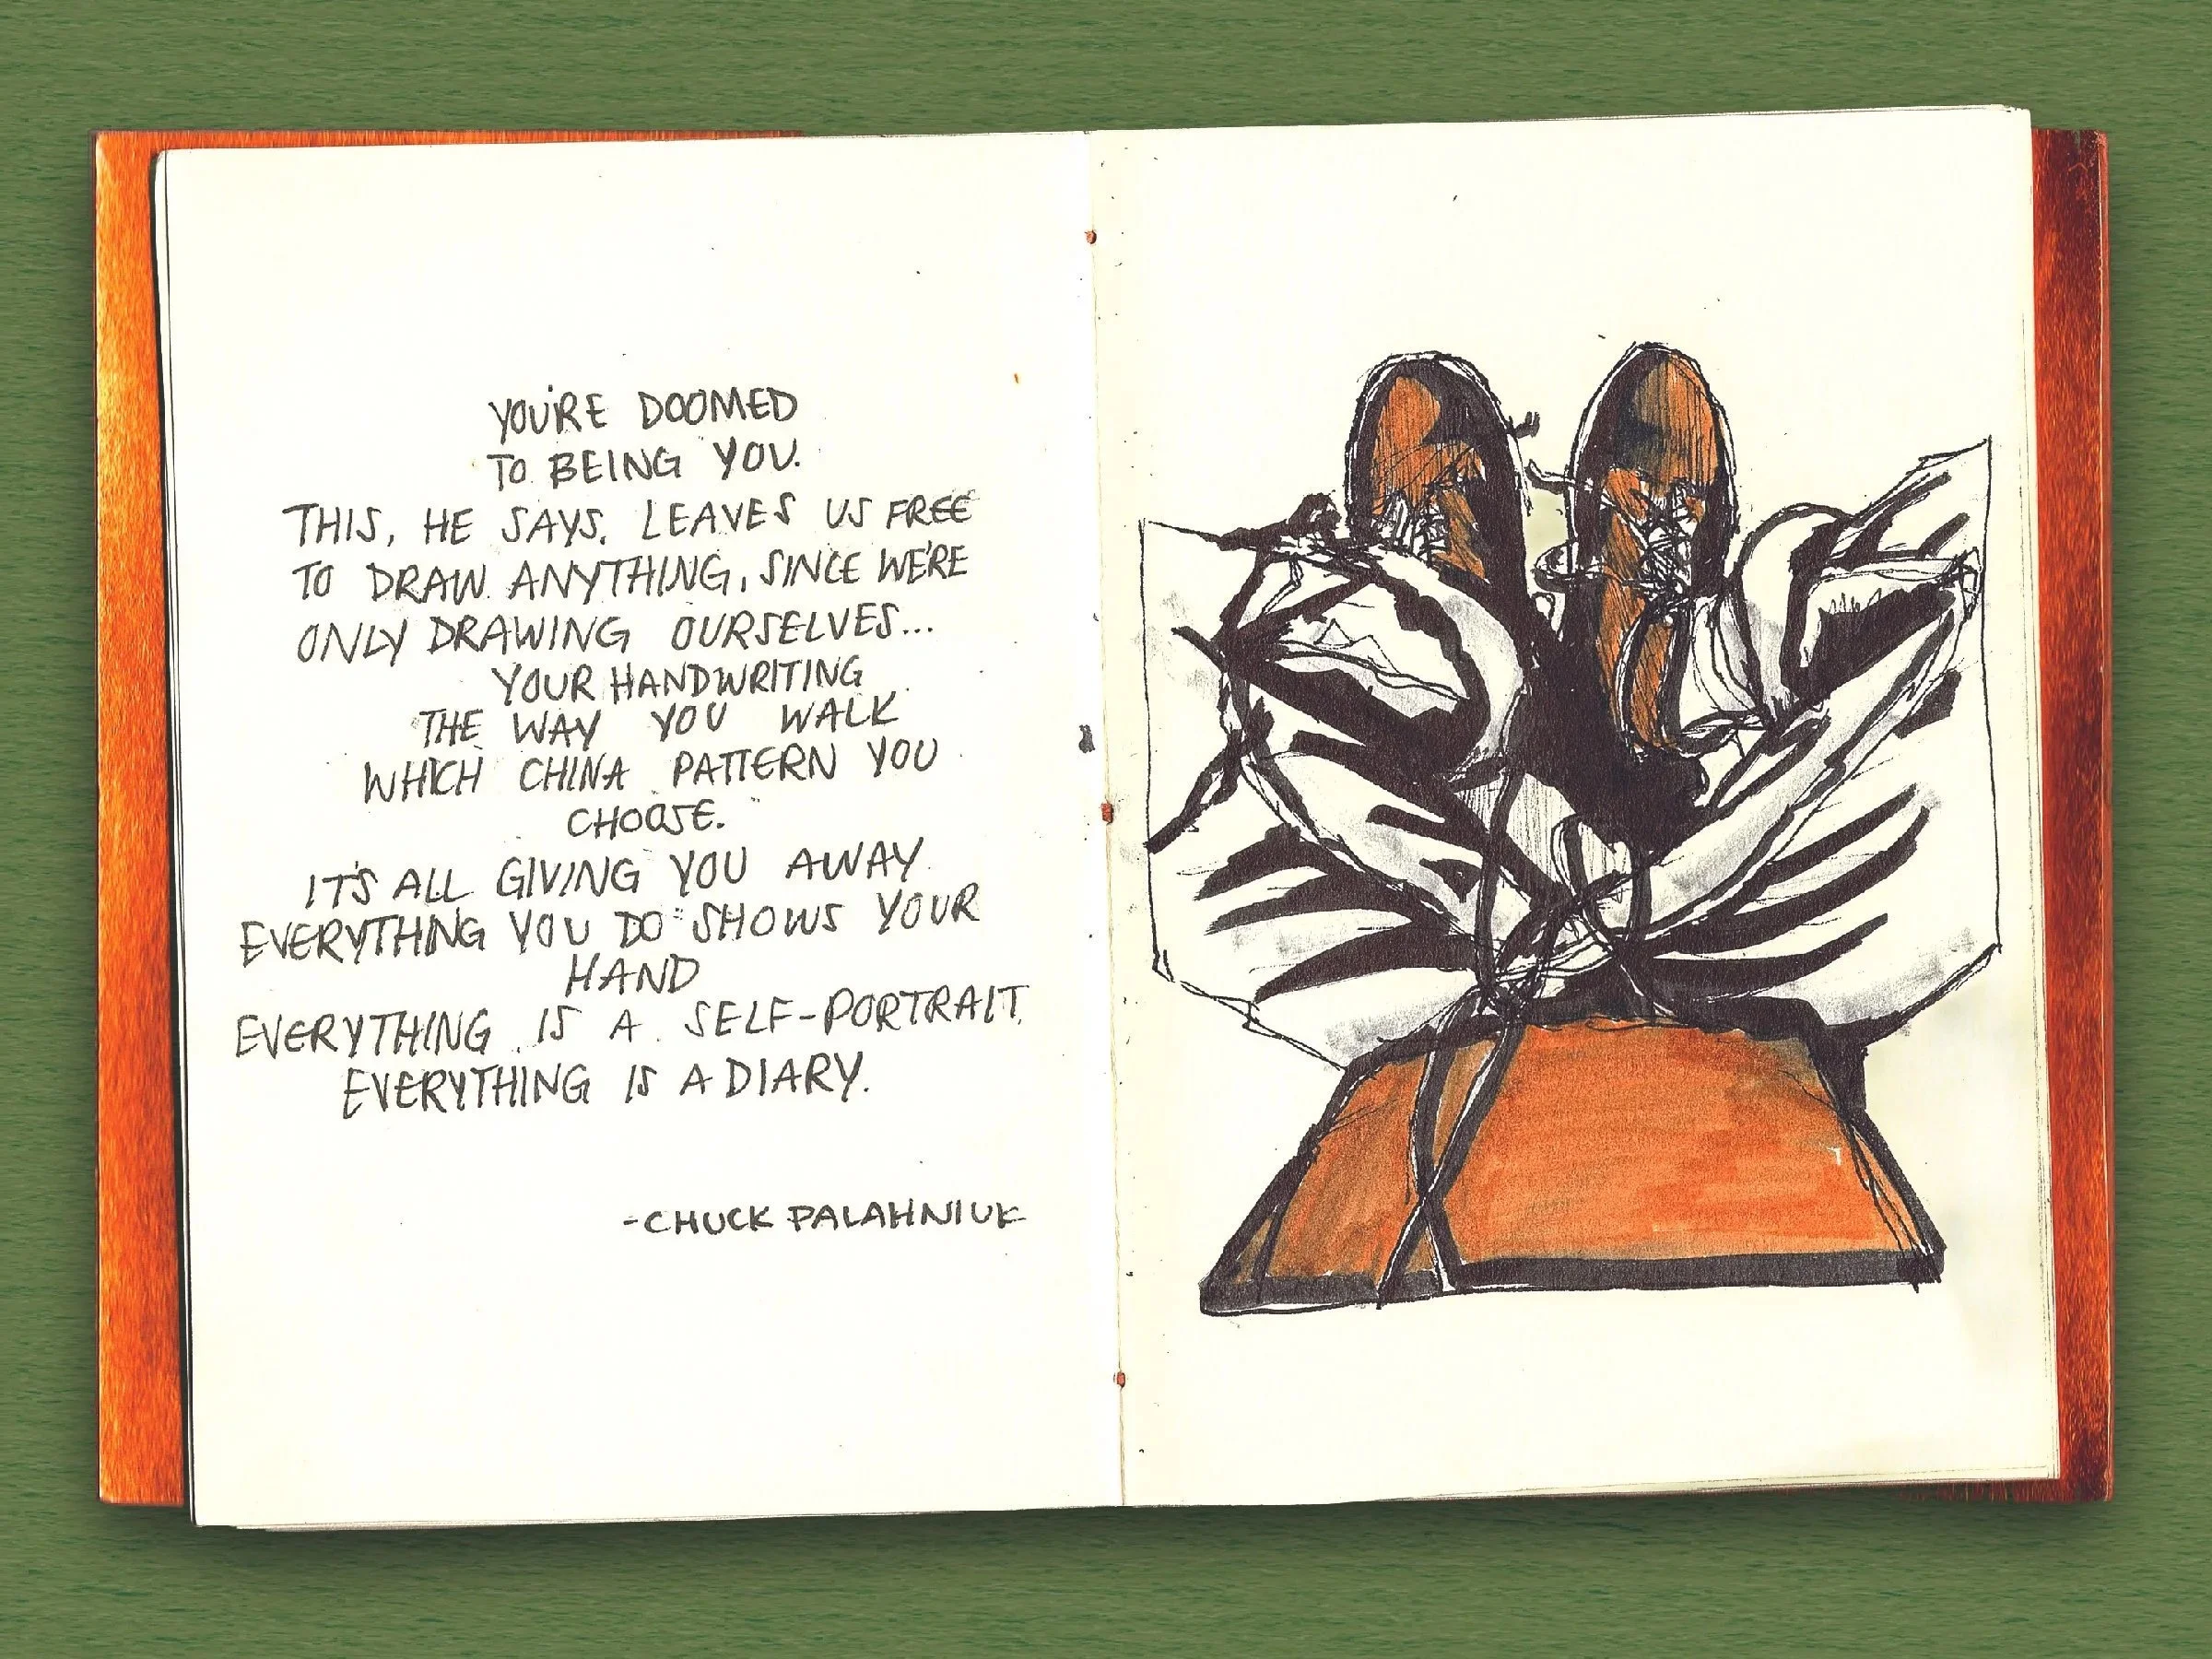 YOU'RE DOOMED
TO BEING YOU.
THIS, HE SAYS. LEAVES US FREE
TO DRAW ANYTHING, SINCE WE'RE
ONLY DRAWING OURSELVES...
YOUR HANDWRITING
THE WAY YOU WALK
WHICH CHINA PATTERN YOU
CHOOSE.
IT'S ALL GIVING YOU AWAY
EVERYTHING YOU DO SHOWS YOUR
HAND
EVERYTHING IS A SELF-PORTRAIT
EVERYTHING IS A DIARY.
-CHUCK PALAHNIUK